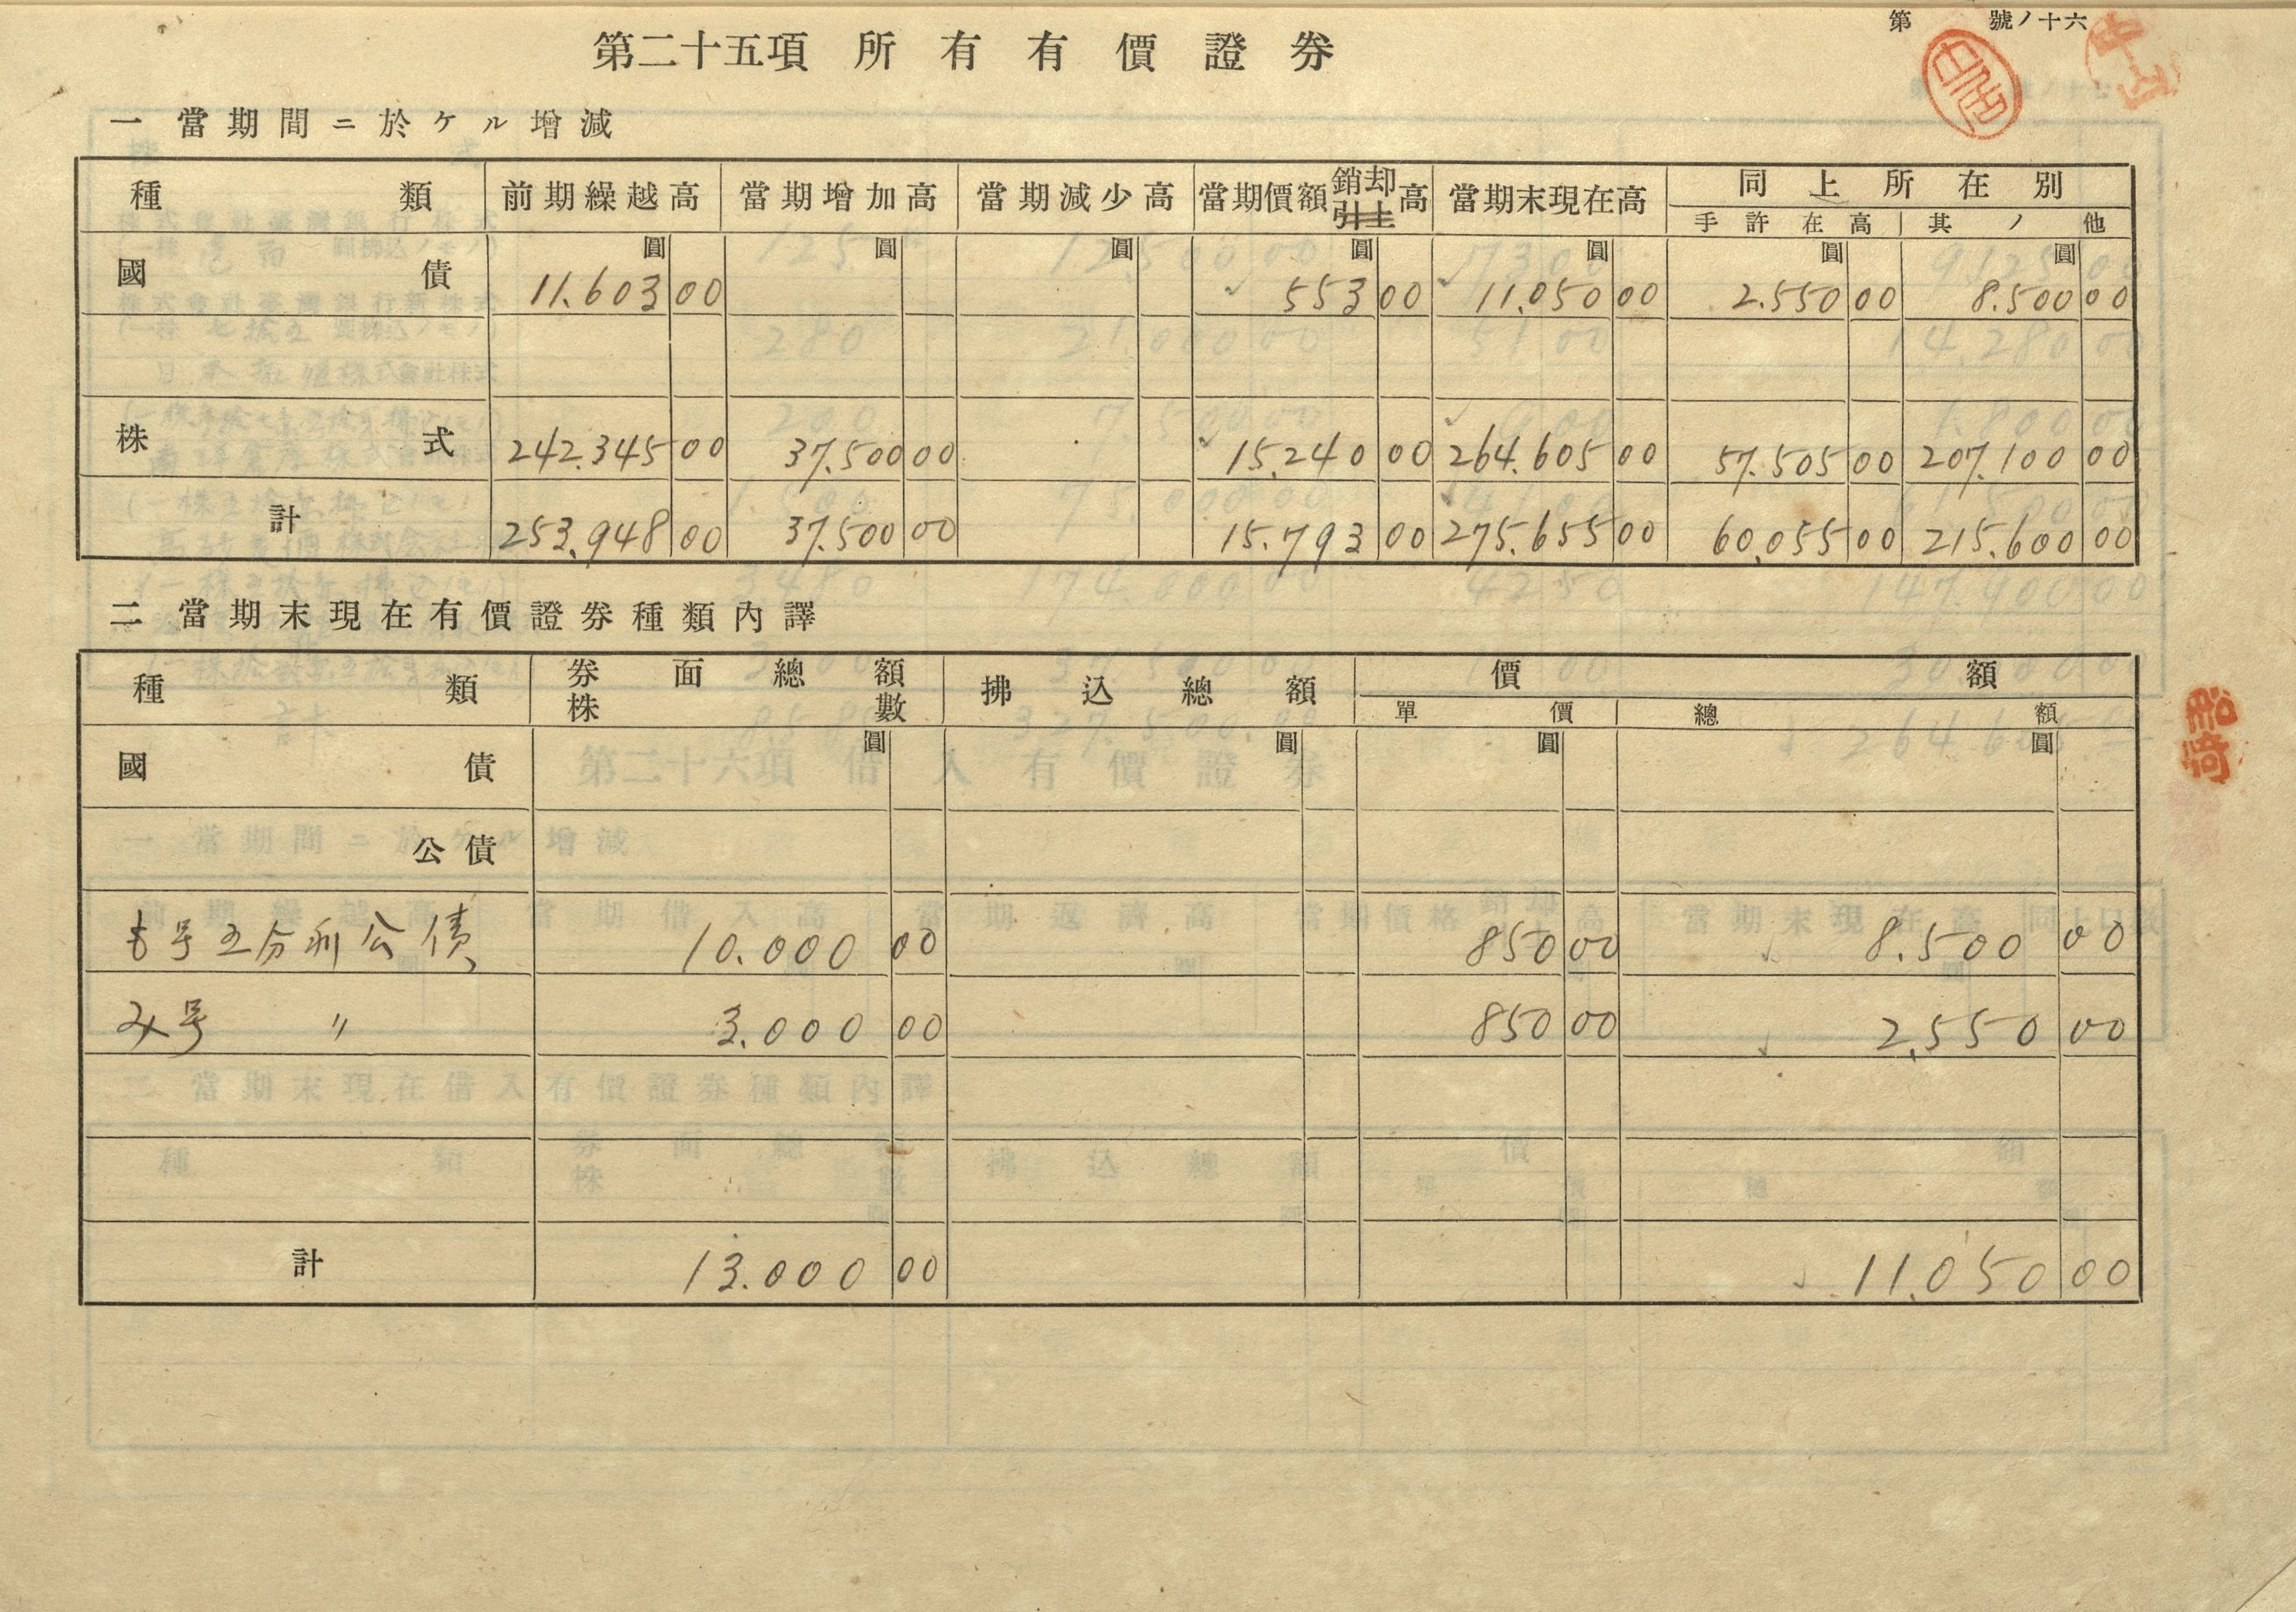 第 號ノ十六
第二十五項 所有有價證券
一 當期間ニ於ケル增減
種類 前期繰越高 當期增加高 當期減少高 當期價額銷却引上高 當期末現在高 同上所在別
手許在高 其ノ他
圓 圓 圓 圓 圓 圓 圓
國債 11.603 00 553 00 11.050 00 2.550 00 8.500 00
株式 242.345 00 37.500 00 15.240 00 264.605 00 57.505 00 207.100 00
計 253.948 00 37.500 00 15.793 00 275.655 00 60.055 00 215.600 00
二 當期末現在有價證券種類內譯
種類 券面總額 株數 拂込總額 價額
單價 總額
圓 圓 圓 圓
國債
公債
も号五分利公債 10.000 00 850 00 8.500 00
み号 〃 3.000 00 850 00 2.550 00
計 13.000 00 11.050 00